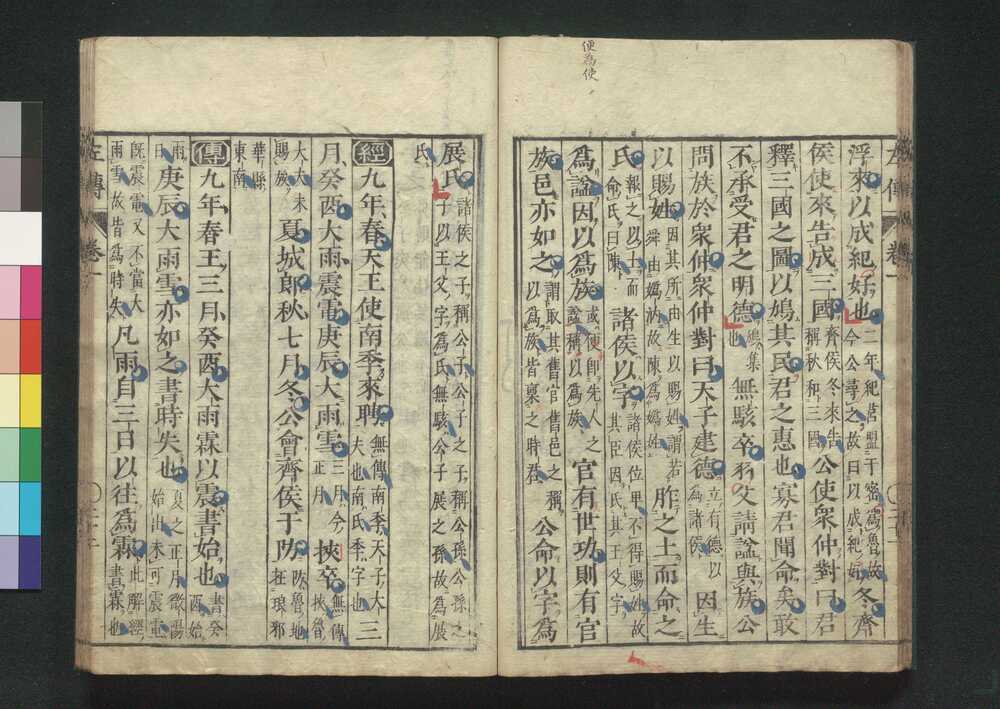 便為使
左傳 卷一
浮來以成紀好也二年紀莒盟于密為魯故今公尋之故曰以成紀好冬齊
侯使來告成三國齊侯冬來告稱秋和三國公使衆仲對曰君
釋三國之圖以鳩其民君之惠也寡君聞命矣敢
不承受君之明德鳩集也無駭卒羽父請謚與族公
問族於衆仲衆仲對曰天子建德立有德以為諸侯因生
以賜姓因其所由生以賜姓謂若舜由嬀汭故陳為嬀姓胙之土而命之
氏報之以土而命氏曰陳諸侯以字諸侯位卑不得賜姓故其臣因氏其王父字
為謚因以為族或便即先人之謚稱以為族官有世功則有官
族邑亦如之謂取其舊官舊邑之稱以為族皆稟之時君公命以字為
展氏諸侯之子稱公子公子之子稱公孫公孫之子以王父字為氏無駭公子展之孫故為展
氏
經九年春天王使南季來聘無傳南季天子大夫也南氏季字也三
月癸酉大雨震電庚辰大雨雪三月今正月挾卒無傳挾魯
大夫未賜族夏城郎秋七月冬公會齊侯于防防魯地在琅邪
華縣東南
傳九年春王三月癸酉大雨霖以震書始也書癸酉始
雨日庚辰大雨雪亦如之書時失也夏之正月微陽始出未可震電
既震電又不當大雨雪故皆為時失凡雨自三日以往為霖此解經書霖也
左傳 卷一